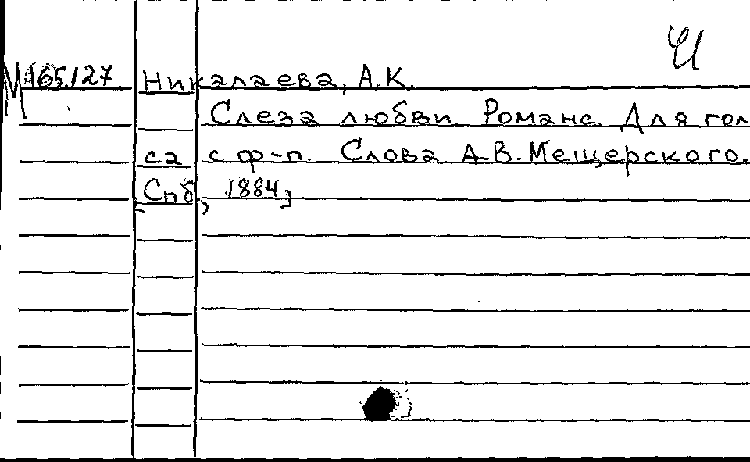 М165.127 Николаева, А.К.
Слеза любви. Романс. Для голо
са с ф-п. Слова А.В. Мещерского.
[Спб, 1884]